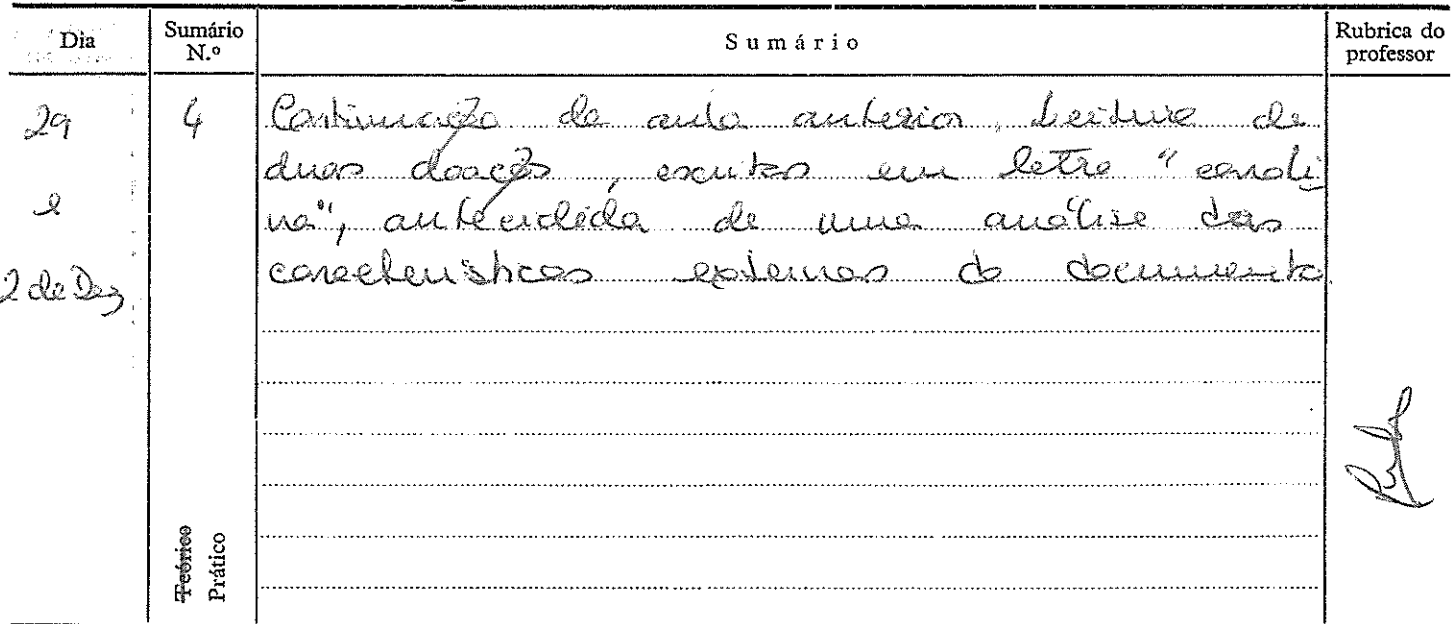 Dia
Sumário N.º
Sumário
Rubrica do professor
29 e 2 de Dez
4
Continuação da aula anterior. Leitura de
duas doações, escritas em letra "carolí
na", antecedida de uma análise das
características externas do documento
Teórico
Prático